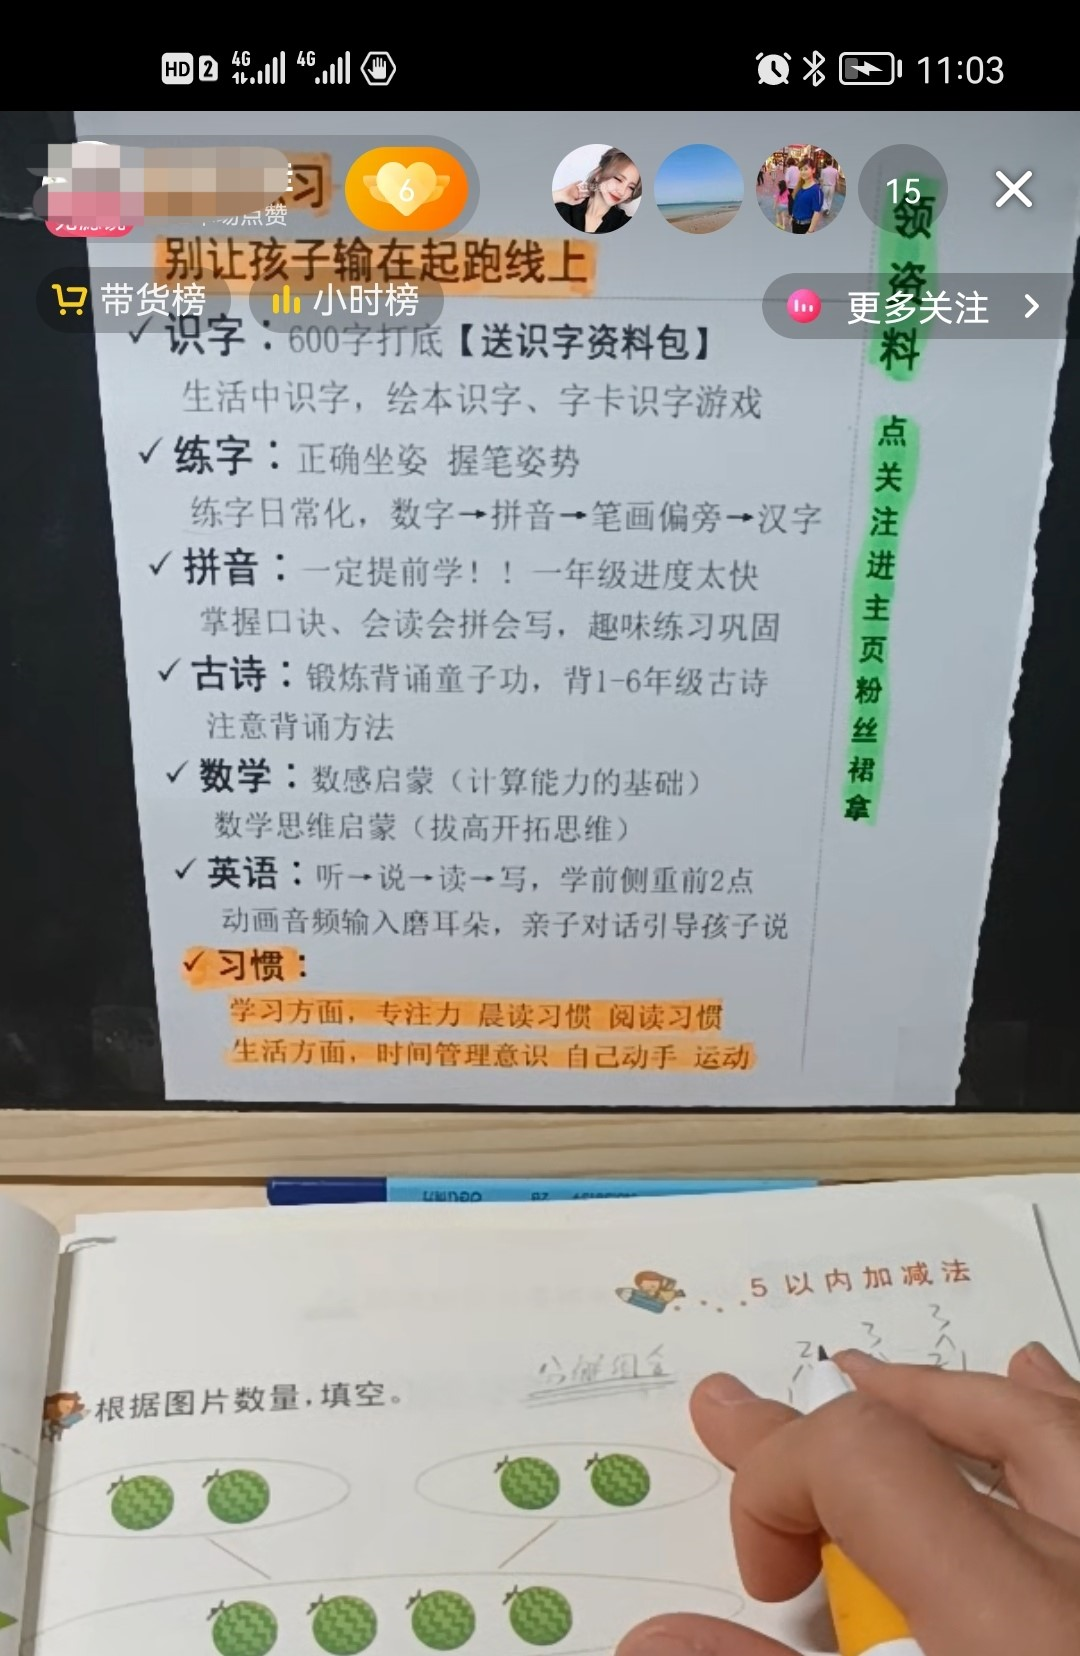 HD 2 4G 4G 11:03
习
场点赞
6
15
别让孩子输在起跑线上
带货榜
小时榜
更多关注
识字：600字打底【送识字资料包】
生活中识字，绘本识字、字卡识字游戏
练字：正确坐姿 握笔姿势
练字日常化，数字→拼音→笔画偏旁→汉字
拼音：一定提前学！！一年级进度太快
掌握口诀、会读会拼会写，趣味练习巩固
古诗：锻炼背诵童子功，背1-6年级古诗
注意背诵方法
数学：数感启蒙（计算能力的基础）
数学思维启蒙（拔高开拓思维）
英语：听→说→读→写，学前侧重前2点
动画音频输入磨耳朵，亲子对话引导孩子说
习惯：
学习方面，专注力 晨读习惯 阅读习惯
生活方面，时间管理意识 自己动手 运动
领咨料
点关注进主页粉丝裙拿
5以内加减法
分解组合
根据图片数量，填空。